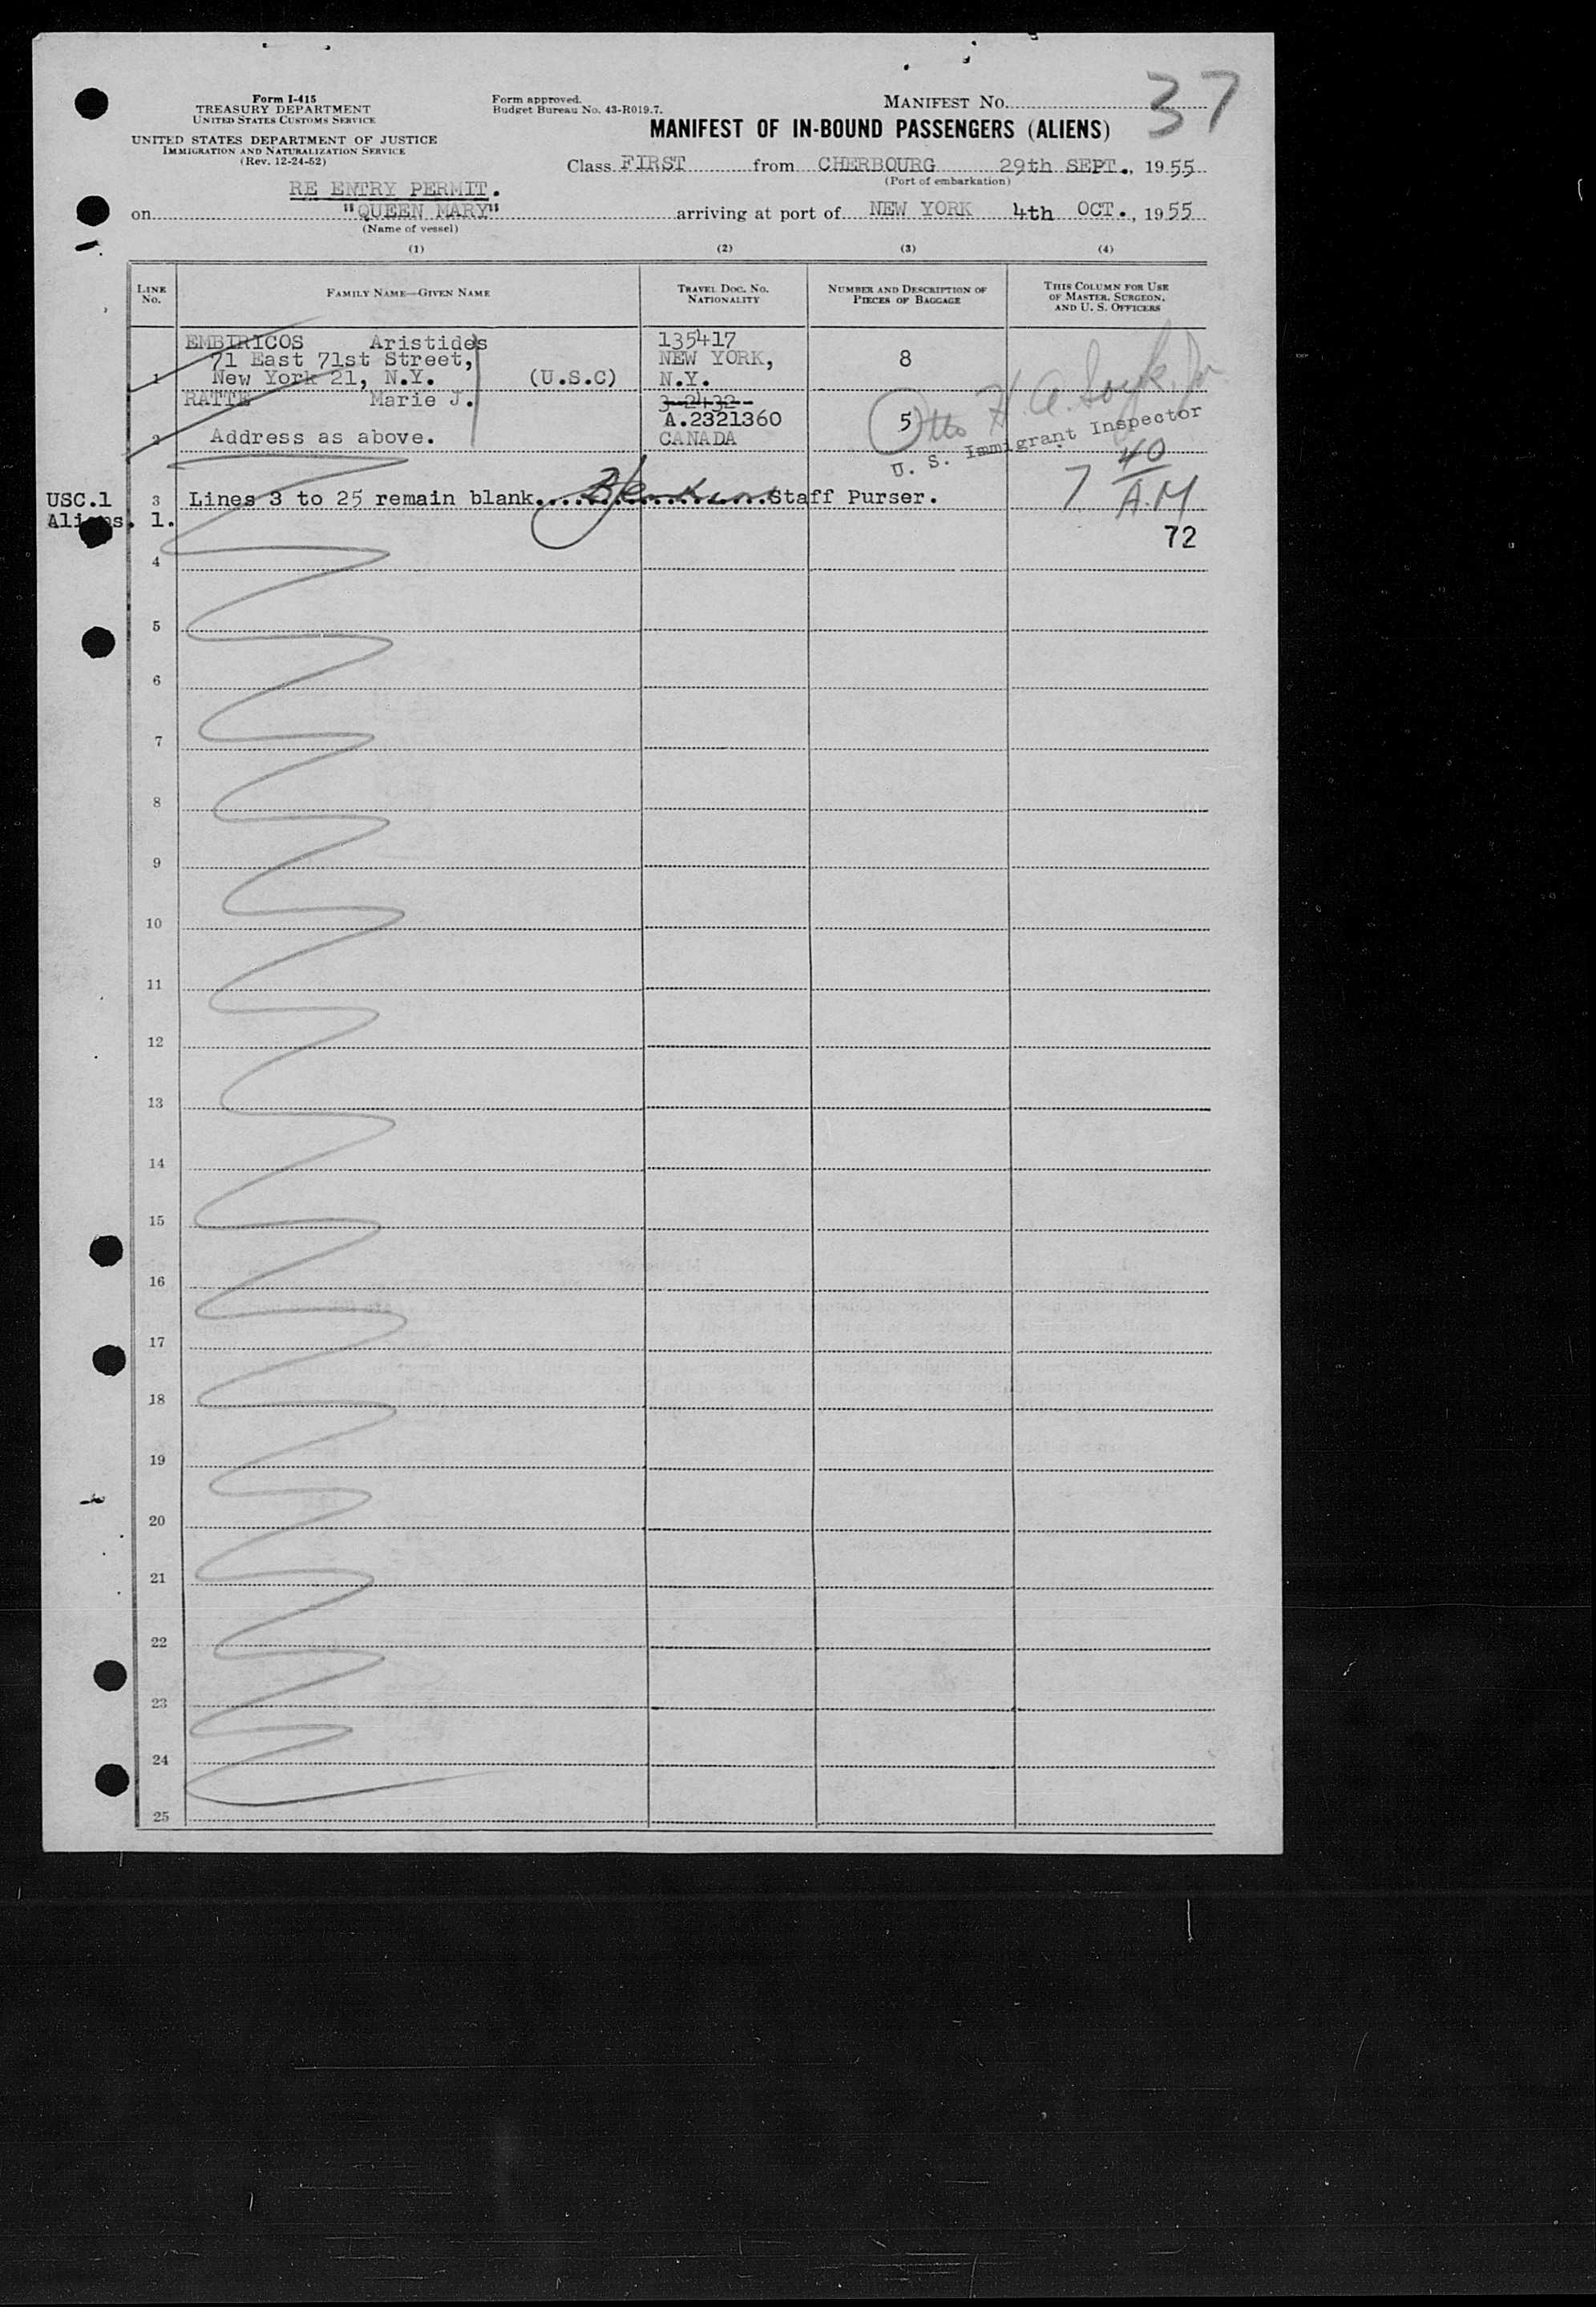 Form I-415
TREASURY DEPARTMENT
UNITED STATES CUSTOMS SERVICE
UNITED STATES DEPARTMENT OF JUSTICE
IMMIGRATION AND NATURALIZATION SERVICE
(Rev. 12-24-52)
Form approved.
Budget Bureau No. 43-R019.7.
MANIFEST NO. 37
MANIFEST OF IN-BOUND PASSENGERS (ALIENS)
Class FIRST from CHERBOURG 29th SEPT., 1955
(Port of embarkation)
RE ENTRY PERMIT.
on "QUEEN MARY" arriving at port of NEW YORK 4th OCT., 1955
(Name of vessel)
(1) (2) (3) (4)
LINE NO. FAMILY NAME—GIVEN NAME TRAVEL DOC. NO. NATIONALITY NUMBER AND DESCRIPTION OF PIECES OF BAGGAGE THIS COLUMN FOR USE OF MASTER, SURGEON, AND U. S. OFFICERS
EMBIRICOS Aristides 135417
71 East 71st Street, NEW YORK, 8
1 New York 21, N.Y. (U.S.C) N.Y.
RATTE Marie J. 3-2432-
A.2321360 5 Otto H. A.
2 Address as above. CANADA U. S. Immigrant Inspector
7 40 A.M
USC.1 3 Lines 3 to 25 remain blank. Staff Purser.
Aliens. 1.
72
4
5
6
7
8
9
10
11
12
13
14
15
16
17
18
19
20
21
22
23
24
25